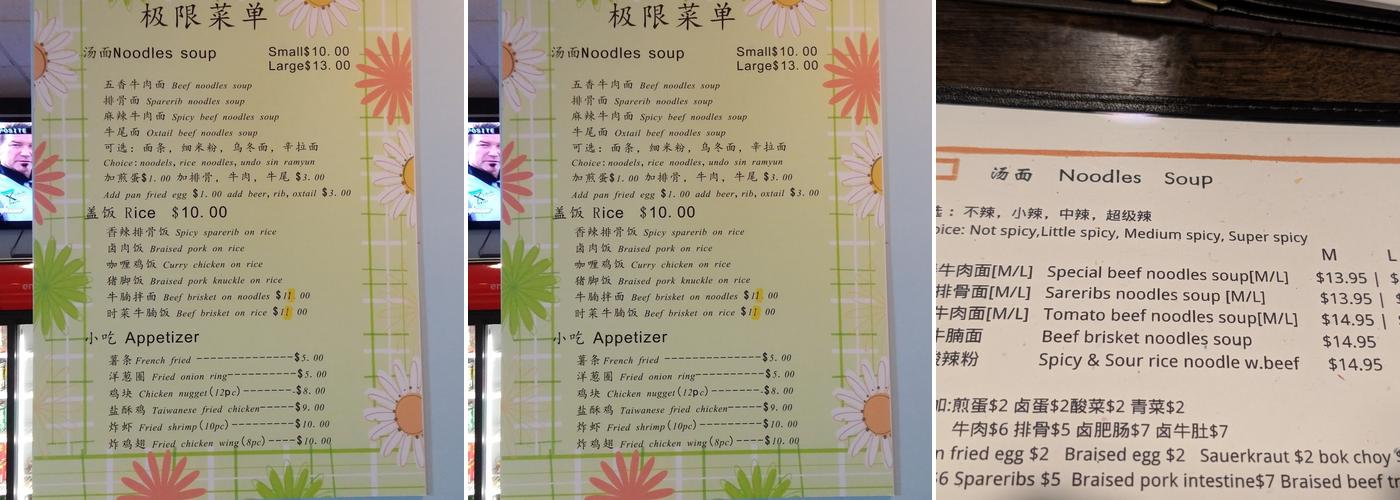 极限菜单
汤面Noodles soup Small$10.00
Large$13.00
五香牛肉面 Beef noodles soup
排骨面 Sparerib noodles soup
麻辣牛肉面 Spicy beef noodles soup
牛尾面 Oxtail beef noodles soup
可选：面条，细米粉，乌冬面，辛拉面
Choice: noodels, rice noodles, undo sin ramyun
加煎蛋$1.00 加排骨，牛肉，牛尾 $3.00
Add pan fried egg $1.00 add beer, rib, oxtail $3.00
盖饭 Rice $10.00
香辣排骨饭 Spicy sparerib on rice
卤肉饭 Braised pork on rice
咖喱鸡饭 Curry chicken on rice
猪脚饭 Braised pork knuckle on rice
牛腩拌面 Beef brisket on noodles $11.00
时菜牛腩饭 Beef brisket on rice $11.00
小吃 Appetizer
薯条 French fried -------------$5.00
洋葱圈 Fried onion ring---------$5.00
鸡块 Chicken nugget(12pc)-------$8.00
盐酥鸡 Taiwanese fried chicken-----$9.00
炸虾 Fried shrimp(10pc)---------$10.00
炸鸡翅 Fried chicken wing(8pc)----$10.00
极限菜单
汤面Noodles soup Small$10.00
Large$13.00
五香牛肉面 Beef noodles soup
排骨面 Sparerib noodles soup
麻辣牛肉面 Spicy beef noodles soup
牛尾面 Oxtail beef noodles soup
可选：面条，细米粉，乌冬面，辛拉面
Choice: noodels, rice noodles, undo sin ramyun
加煎蛋$1.00 加排骨，牛肉，牛尾 $3.00
Add pan fried egg $1.00 add beer, rib, oxtail $3.00
盖饭 Rice $10.00
香辣排骨饭 Spicy sparerib on rice
卤肉饭 Braised pork on rice
咖喱鸡饭 Curry chicken on rice
猪脚饭 Braised pork knuckle on rice
牛腩拌面 Beef brisket on noodles $11.00
时菜牛腩饭 Beef brisket on rice $11.00
小吃 Appetizer
薯条 French fried -------------$5.00
洋葱圈 Fried onion ring---------$5.00
鸡块 Chicken nugget(12pc)-------$8.00
盐酥鸡 Taiwanese fried chicken-----$9.00
炸虾 Fried shrimp(10pc)---------$10.00
炸鸡翅 Fried chicken wing(8pc)----$10.00
汤面 Noodles Soup
：不辣，小辣，中辣，超级辣
oice: Not spicy,Little spicy, Medium spicy, Super spicy
M L
牛肉面[M/L] Special beef noodles soup[M/L] $13.95 |
排骨面[M/L] Sareribs noodles soup [M/L] $13.95 |
牛肉面[M/L] Tomato beef noodles soup[M/L] $14.95 |
牛腩面 Beef brisket noodles soup $14.95
酸辣粉 Spicy & Sour rice noodle w.beef $14.95
加:煎蛋$2 卤蛋$2酸菜$2 青菜$2
牛肉$6 排骨$5 卤肥肠$7 卤牛肚$7
n fried egg $2 Braised egg $2 Sauerkraut $2 bok choy
$6 Spareribs $5 Braised pork intestine$7 Braised beef